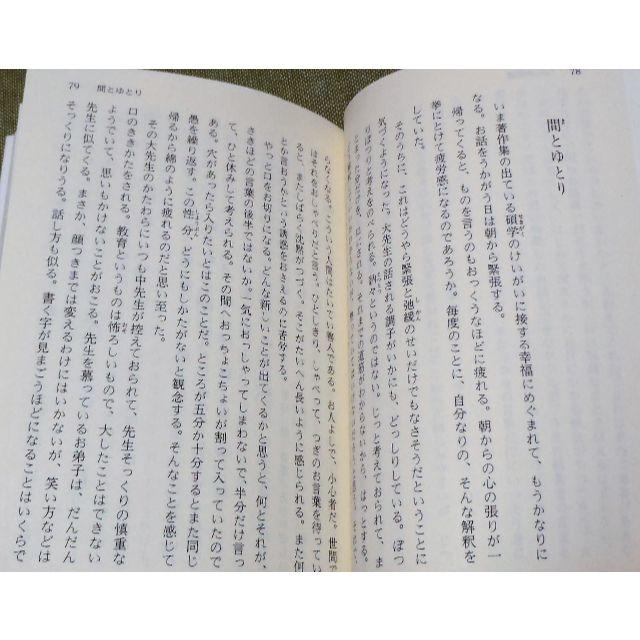 78
間とゆとり
いま著作集の出ている碩学のけいがいに接する幸福にめぐまれて、もうかなりに
なる。お話をうかがう日は朝から緊張する。
帰ってくると、ものを言うのもおっくうなほどに疲れる。朝からの心の張りが一
挙にとけて疲労感になるのであろうか。毎度のことに、自分なりの、そんな解釈を
していた。
そのうちに、これはどうやら緊張と弛緩のせいだけでもなさそうだということに
気づくようになった。大先生の話される調子がいかにも、どっしりしている。ぽつ
りぽつりと考えをのべられる。訥々というのではない。じっと考えておられて、ま
79
間とゆとり
らなくなる。こういう人間はたいてい善人である。お人よしで、小心者だ。世間で
はそれをおしゃべりだと言う。ひとしきり、しゃべって、つぎのお言葉を待ってい
ると、またしばらく沈黙がつづく。そこがたいへん長いように感じられる。また何
か言おうという誘惑をおさえるのに苦労する。
やっと口をお切りになる。どんな新しいことが出てくるかと思うと、何とそれが、
さきほどの言葉の後半ではないか。一気におっしゃってしまわないで、半分だけ言っ
て、ひと休みして考えられる。その間へおっちょこちょいが割って入っていたので
ある。穴があったら入りたいとはこのことだ。ところが五分か十分するとまた同じ
愚を繰り返す。この性分、どうにもしかたがないと観念する。そんなことを感じて
帰るから綿のように疲れるのだと思い至った。
その大先生のかたわらにいつも中先生が控えておられて、先生そっくりの慎重な
口のききかたをされる。教育というものは怖ろしいもので、大したことはできない
ようでいて、思いもかけないことがおこる。先生を慕っているお弟子は、だんだん
先生に似てくる。まさか、顔つきまでは変えるわけにはいかないが、笑い方などは
そっくりになりうる。話し方も似る。書く字が見まごうほどになることはいくらで